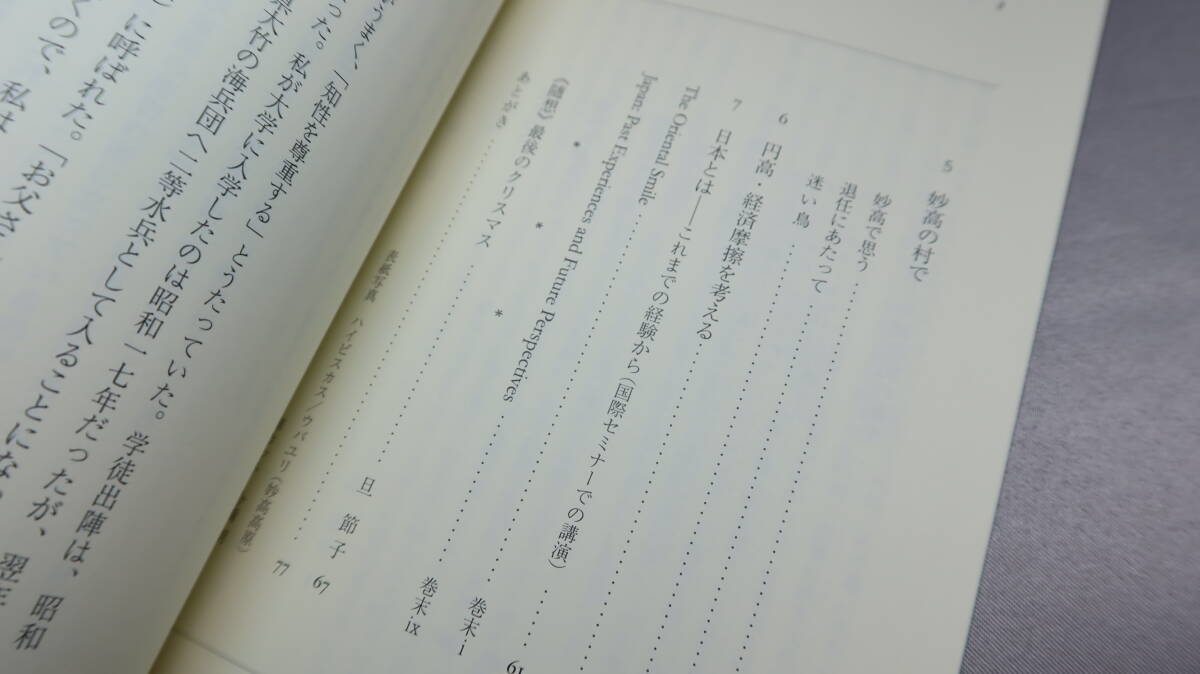 5 妙高の村で
妙高で思う……………
退任にあたって……………
迷い鳥……………
6 円高・経済摩擦を考える……………
7 日本とは——これまでの経験から(国際セミナーでの講演)…… 61
The Oriental Smile…………… 巻末 i
Japan: Past Experiences and Future Perspectives…………… 巻末 ix
* * *
《随想》最後のクリスマス…………… 旦 節子 67
あとがき…………… 77
表紙写真 ハイビスカス/ウバユリ(妙高高原)
うまく、「知性を尊重する」とうたっていた。学徒出陣は、昭和
った。私が大学に入学したのは昭和一七年だったが、翌年
県大竹の海兵団へ二等水兵として入ることにな
)に呼ばれた。「お父さ
くので、私は